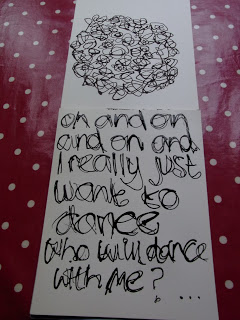 on and on
and on and
I really just
want to
dance
who will dance
with me? ...